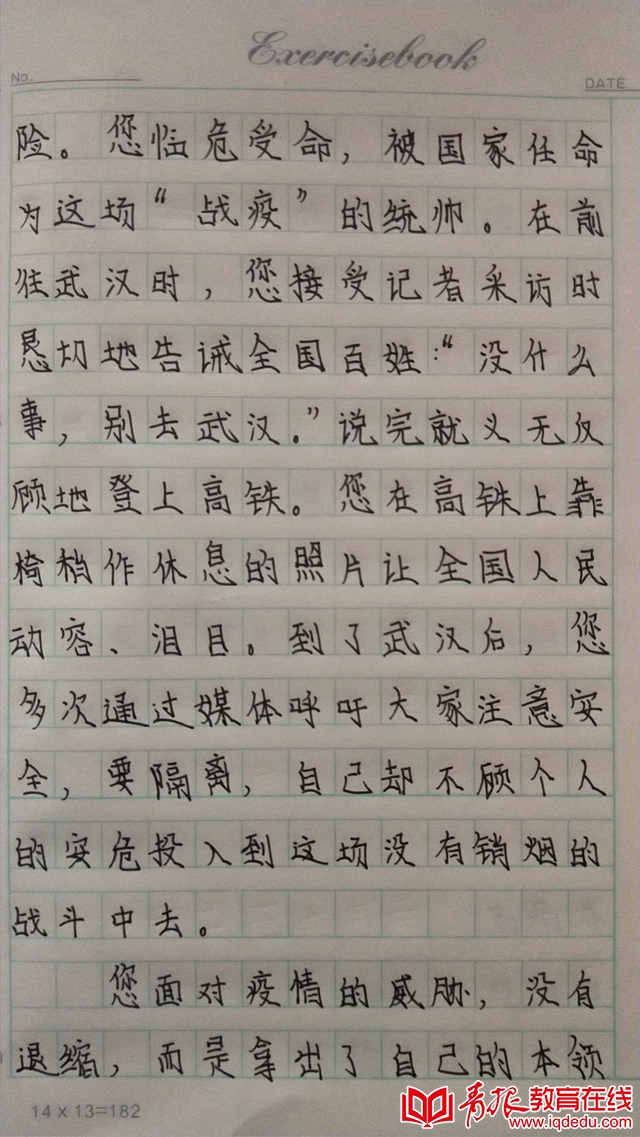 Exercisebook
No.
DATE
险。您临危受命，被国家任命
为这场“战疫”的统帅。在前
往武汉时，您接受记者采访时
恳切地告诫全国百姓：“没什么
事，别去武汉。”说完就义无反
顾地登上高铁。您在高铁上靠
椅稍作休息的照片让全国人民
动容、泪目。到了武汉后，您
多次通过媒体呼吁大家注意安
全，要隔离，自己却不顾个人
的安危投入到这场没有销烟的
战斗中去。
您面对疫情的威胁，没有
退缩，而是拿出了自己的本领
14×13=182
青报教育在线
www.iqdedu.com